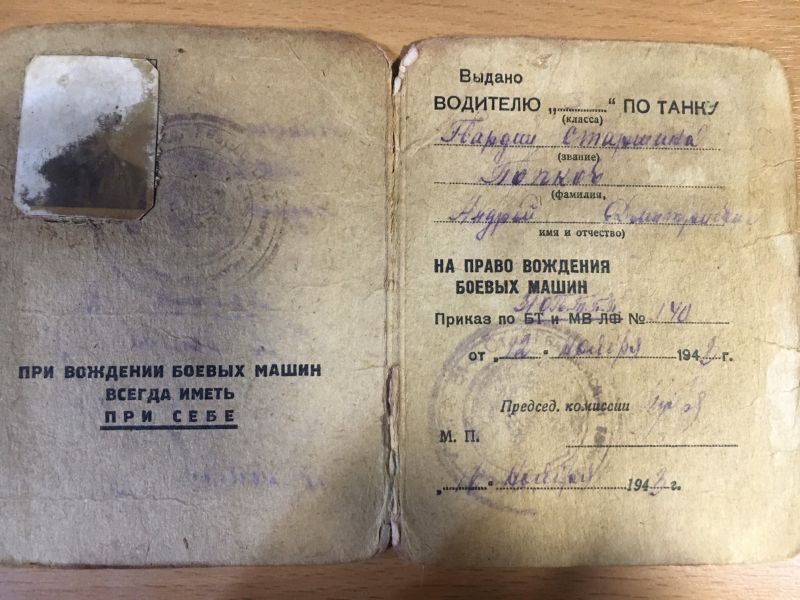 ПРИ ВОЖДЕНИИ БОЕВЫХ МАШИН
ВСЕГДА ИМЕТЬ
ПРИ СЕБЕ
Выдано
ВОДИТЕЛЮ „........“ ПО ТАНКУ
(класса)
Гвардии Старшина
(звание)
Попков
(фамилия,
Андрей Дмитриевич
имя и отчество)
НА ПРАВО ВОЖДЕНИЯ
БОЕВЫХ МАШИН
Приказ по БТ и МВ ЛФ № 140
от „12“ ноября 1943 г.
Председ. комиссии
М. П.
„16“ ноября 1943 г.